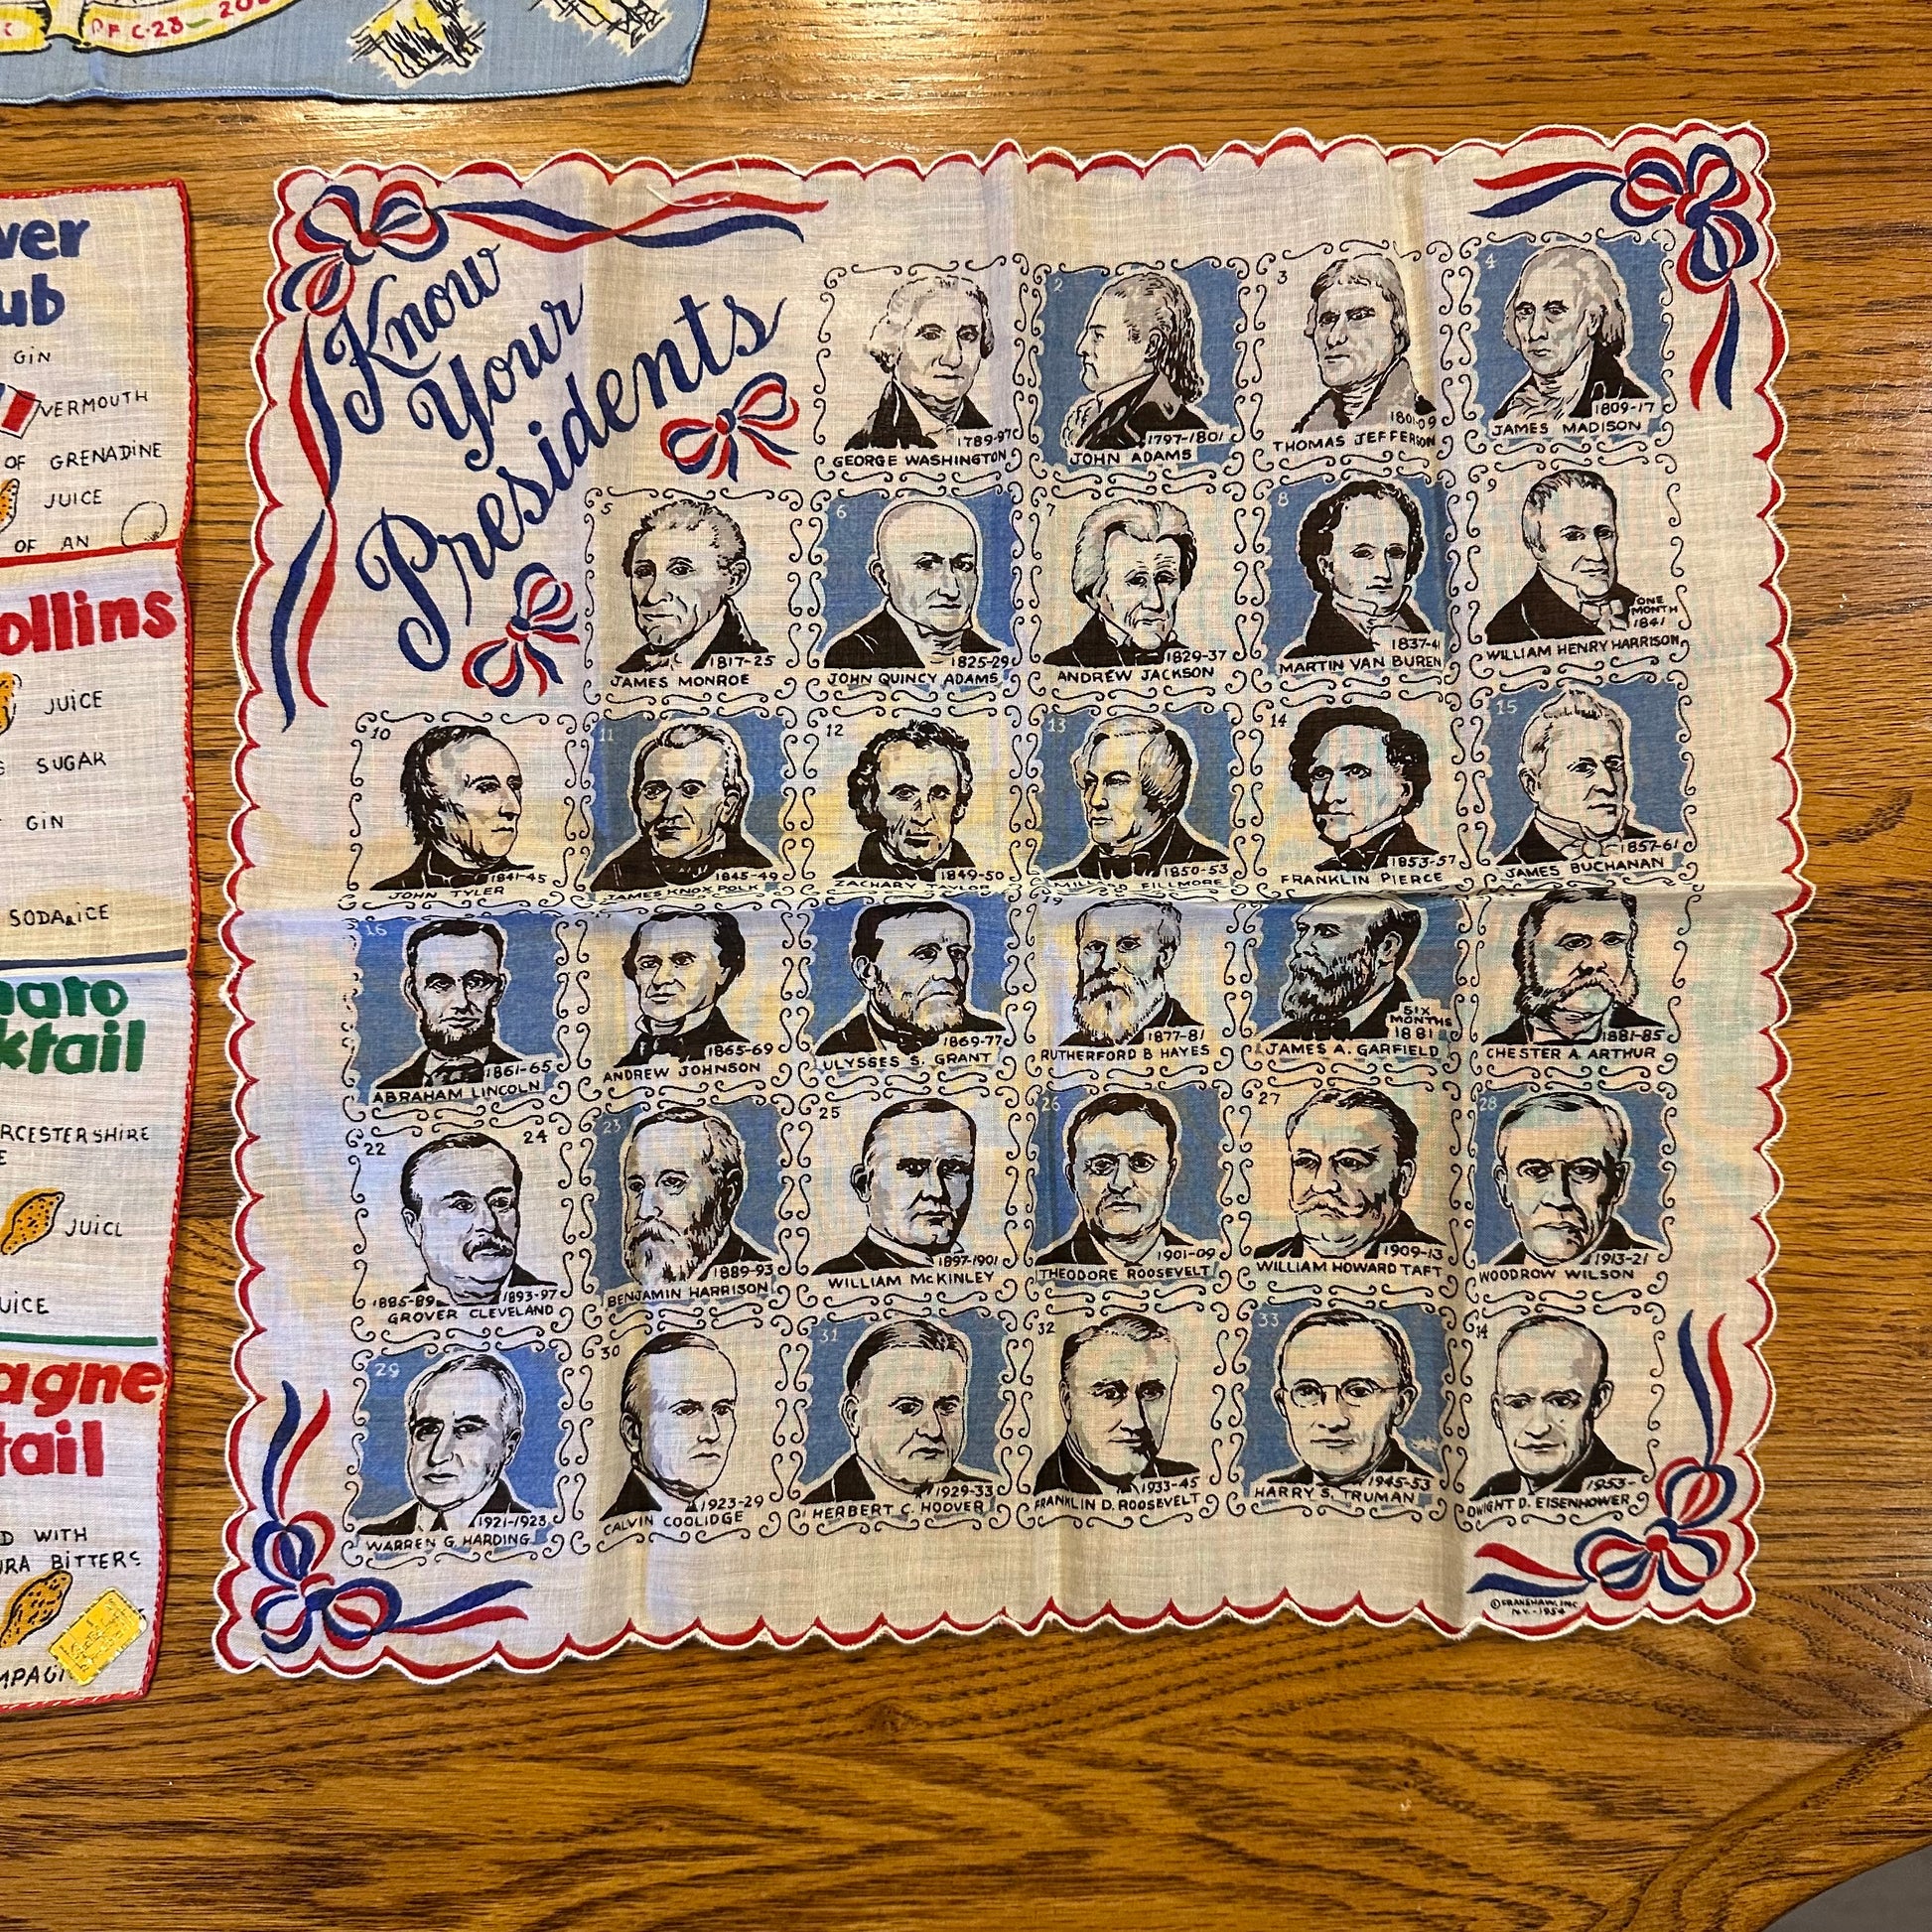 PFC-28
Know
Your
Presidents
1789-97
GEORGE WASHINGTON
2
1797-1801
JOHN ADAMS
3
1801-09
THOMAS JEFFERSON
4
1809-17
JAMES MADISON
5
1817-25
JAMES MONROE
6
1825-29
JOHN QUINCY ADAMS
7
1829-37
ANDREW JACKSON
8
1837-41
MARTIN VAN BUREN
9
ONE
MONTH
1841
WILLIAM HENRY HARRISON
10
1841-45
JOHN TYLER
11
1845-49
JAMES KNOX POLK
12
1849-50
ZACHARY TAYLOR
13
1850-53
FILLMORE
14
1853-57
FRANKLIN PIERCE
15
1857-61
JAMES BUCHANAN
16
1861-65
ABRAHAM LINCOLN
1865-69
ANDREW JOHNSON
1869-77
ULYSSES S. GRANT
19
1877-81
RUTHERFORD B HAYES
SIX
MONTHS
1881
JAMES A. GARFIELD
1881-85
CHESTER A. ARTHUR
22 24
1885-89 1893-97
GROVER CLEVELAND
23
1889-93
BENJAMIN HARRISON
25
1897-1901
WILLIAM McKINLEY
26
1901-09
THEODORE ROOSEVELT
27
1909-13
WILLIAM HOWARD TAFT
28
1913-21
WOODROW WILSON
29
1921-1923
WARREN G. HARDING
30
1923-29
CALVIN COOLIDGE
31
1929-33
HERBERT C. HOOVER
32
1933-45
FRANKLIN D. ROOSEVELT
33
1945-53
HARRY S. TRUMAN
34
1953-
DWIGHT D. EISENHOWER
© FRANSHAW, INC.
N.Y.-1954
ver
ub
GIN
VERMOUTH
OF GRENADINE
JUICE
OF AN
ollins
JUICE
SUGAR
GIN
SODA & ICE
mato
ktail
RCESTERSHIRE
E
JUICE
UICE
agne
tail
D WITH
URA BITTERS
MPAGN